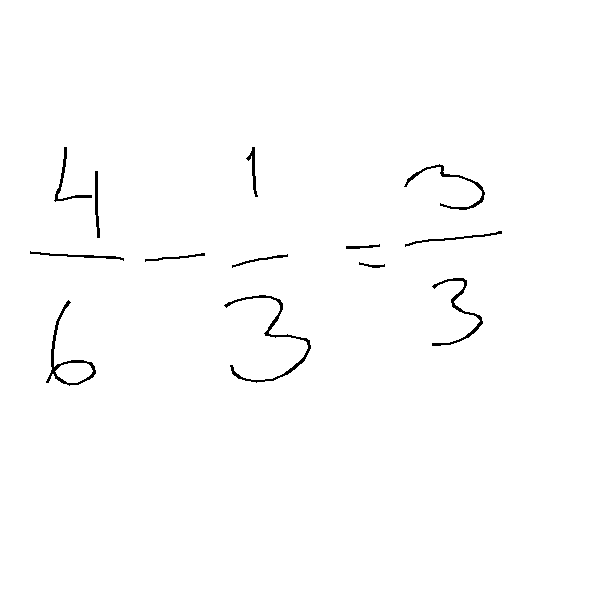 4/6 - 1/3 = 3/3